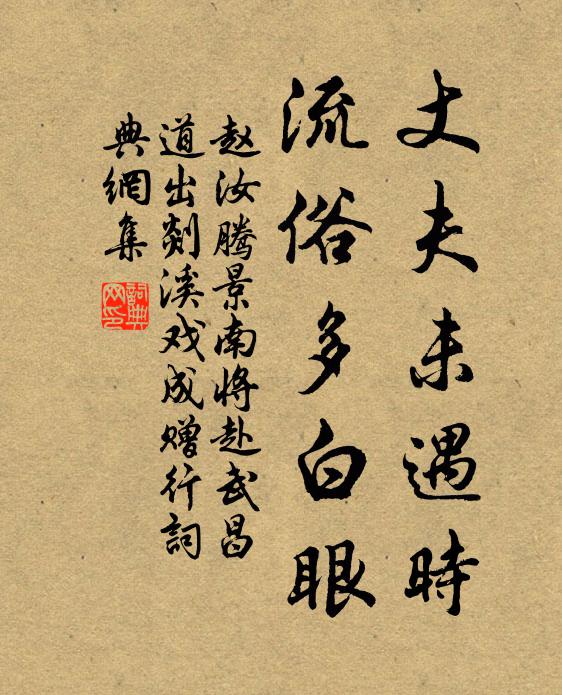 丈夫未遇時
流俗多白眼
赵汝腾景南将赴武昌
道出剡溪戏成赠行詞
典網集
詞典网印